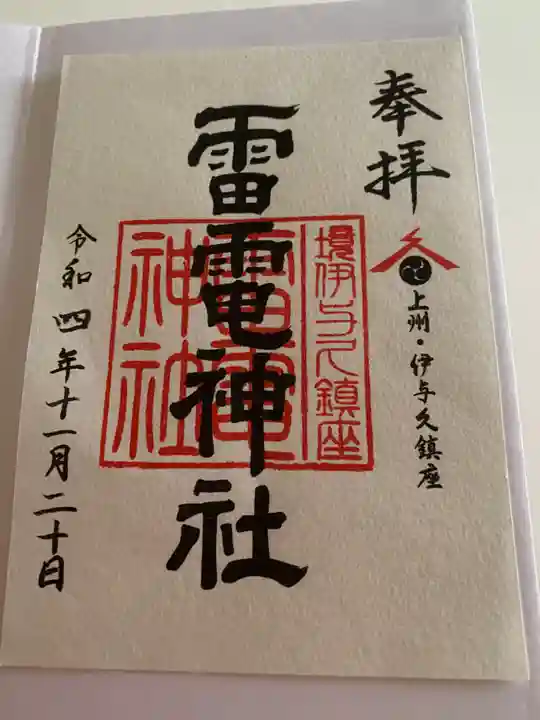 奉拝
上州・伊与久鎮座
境伊与久鎮座
雷電神社
雷電
神社
令和四年十一月二十日